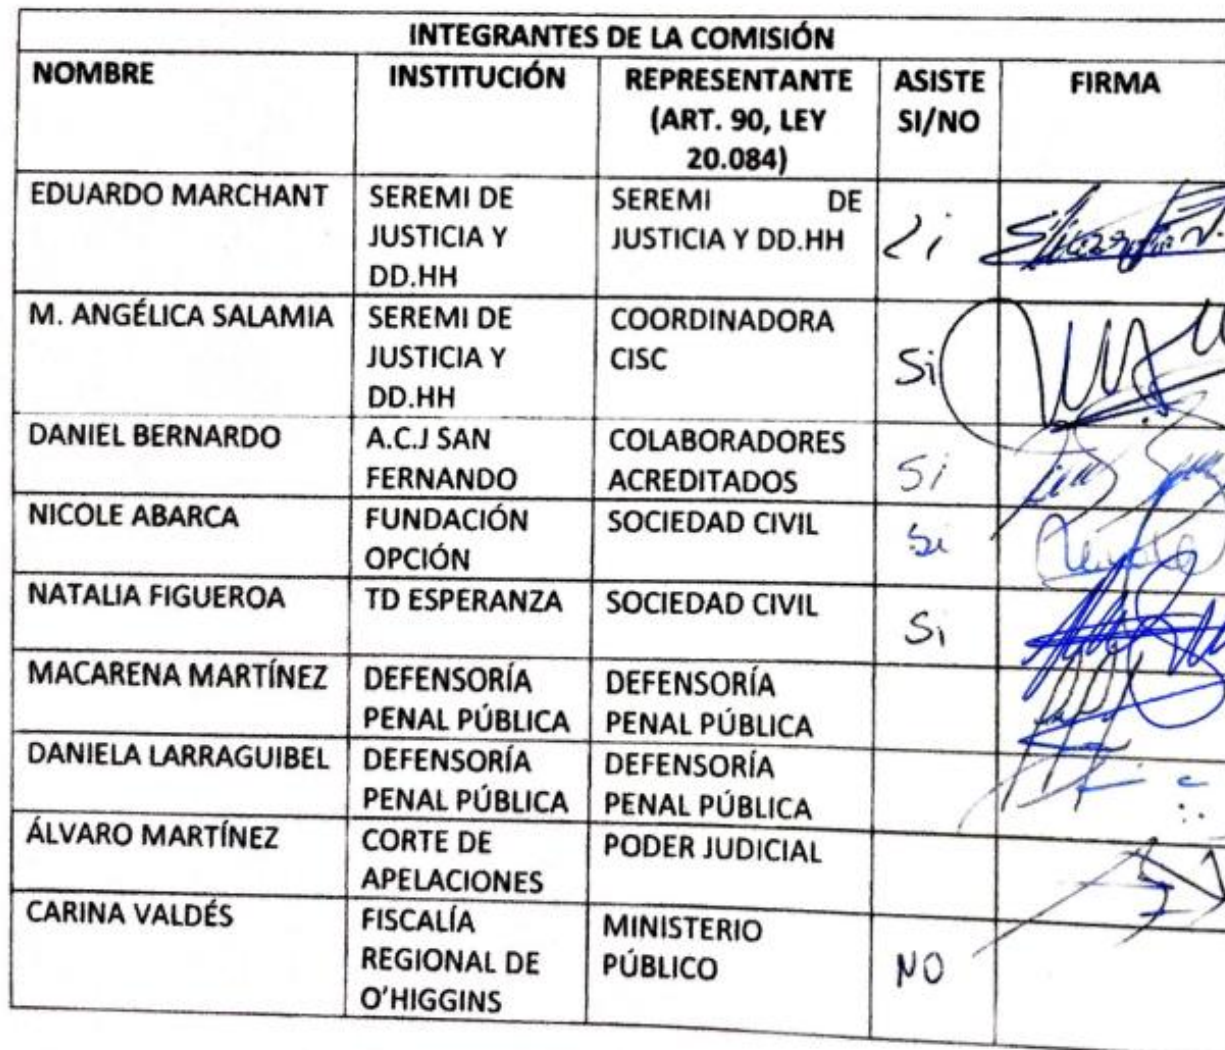 INTEGRANTES DE LA COMISIÓN
NOMBRE
INSTITUCIÓN
REPRESENTANTE
(ART. 90, LEY
20.084)
ASISTE
SI/NO
FIRMA
EDUARDO MARCHANT
SEREMI DE
JUSTICIA Y
DD.HH
SEREMI DE
JUSTICIA Y DD.HH
Si
M. ANGÉLICA SALAMIA
SEREMI DE
JUSTICIA Y
DD.HH
COORDINADORA
CISC
Si
DANIEL BERNARDO
A.C.J SAN
FERNANDO
COLABORADORES
ACREDITADOS
Si
NICOLE ABARCA
FUNDACIÓN
OPCIÓN
SOCIEDAD CIVIL
Si
NATALIA FIGUEROA
TD ESPERANZA
SOCIEDAD CIVIL
Si
MACARENA MARTÍNEZ
DEFENSORÍA
PENAL PÚBLICA
DEFENSORÍA
PENAL PÚBLICA
DANIELA LARRAGUIBEL
DEFENSORÍA
PENAL PÚBLICA
DEFENSORÍA
PENAL PÚBLICA
ÁLVARO MARTÍNEZ
CORTE DE
APELACIONES
PODER JUDICIAL
CARINA VALDÉS
FISCALÍA
REGIONAL DE
O'HIGGINS
MINISTERIO
PÚBLICO
NO